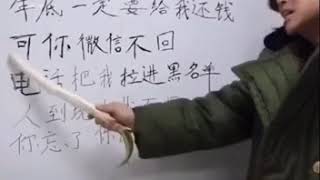 年底一定要给我还钱
可你微信不回
电话把我拉进黑名单
人到现
你忘了你